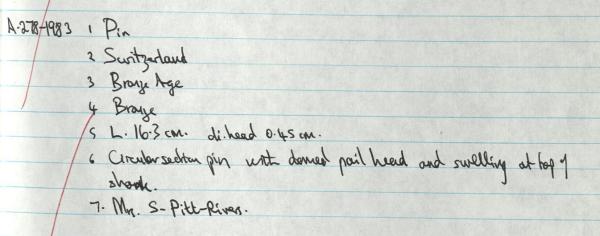 A.278-1983 1 Pin
2 Switzerland
3 Bronze Age
4 Bronze
5 L. 16.3 cm. di. head 0.45 cm.
6 Circular section pin with domed nail head and swelling at top of
shank.
7. Mrs. S-Pitt-Rivers.